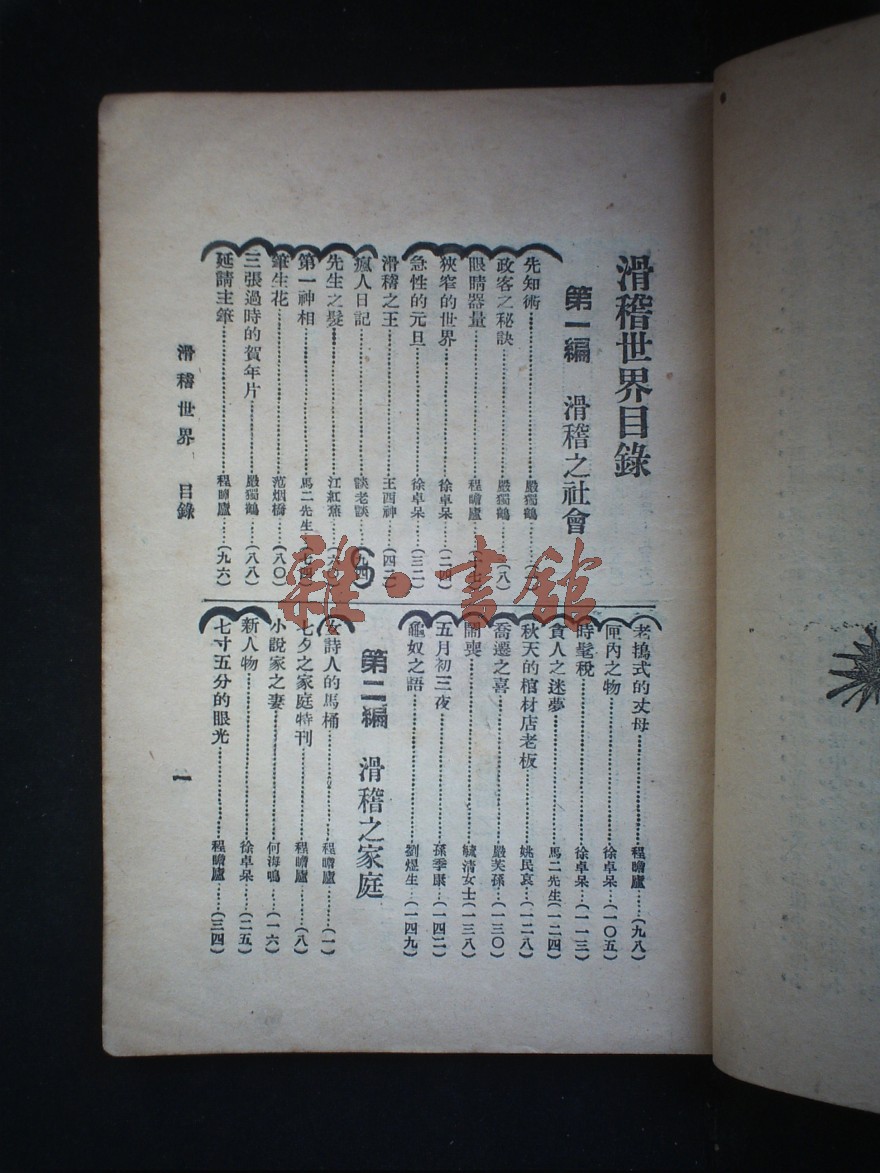 滑稽世界目錄
第一編 滑稽之社會
先知術………嚴獨鶴…
政客之秘訣………嚴獨鶴…(八)
眼睛器量………程瞻廬…
狹窄的世界………徐卓呆…(二四)
急性的元旦………徐卓呆…(三二)
滑稽之王………王西神…(四二)
瘋人日記………談老談…
先生之髮………江紅蕉…
第一神相………馬二先生…
筆生花………范烟橋…(八〇)
三張過時的賀年片………嚴獨鶴…(八八)
延請主筆………程瞻廬…(九六)
老鴇式的丈母………程瞻廬…(九八)
匣內之物………徐卓呆…(一〇五)
時髦稅………徐卓呆…(一一三)
貪人之迷夢………馬二先生(一二四)
秋天的棺材店老板………姚民哀…(一二八)
喬遷之喜………嚴芙孫…(一三〇)
鬧喪………毓清女士(一三八)
五月初三夜………孫季康…(一四二)
龜奴之語………劉煜生…(一四九)
第二編 滑稽之家庭
女詩人的馬桶………程瞻廬…(一)
七夕之家庭特刊………程瞻廬…(八)
小說家之妻………何海鳴…(一六)
新人物………徐卓呆…(二五)
七寸五分的眼光………程瞻廬…(三四)
滑稽世界 目錄
一
雜·書館